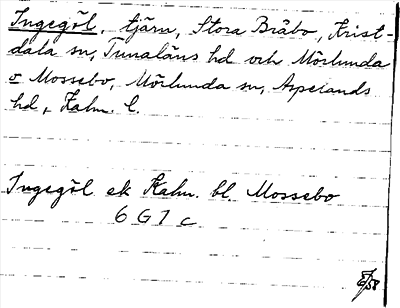 Ingegöl, tjärn, Stora Bråbo, Krist-
dala sn, Tunaläns hd och Mörlunda
o Mossebo, Mörlunda sn, Aspelands
hd, Kalm. l.
Ingegöl ek Kalm. bl. Mossebo
6 G 1 c